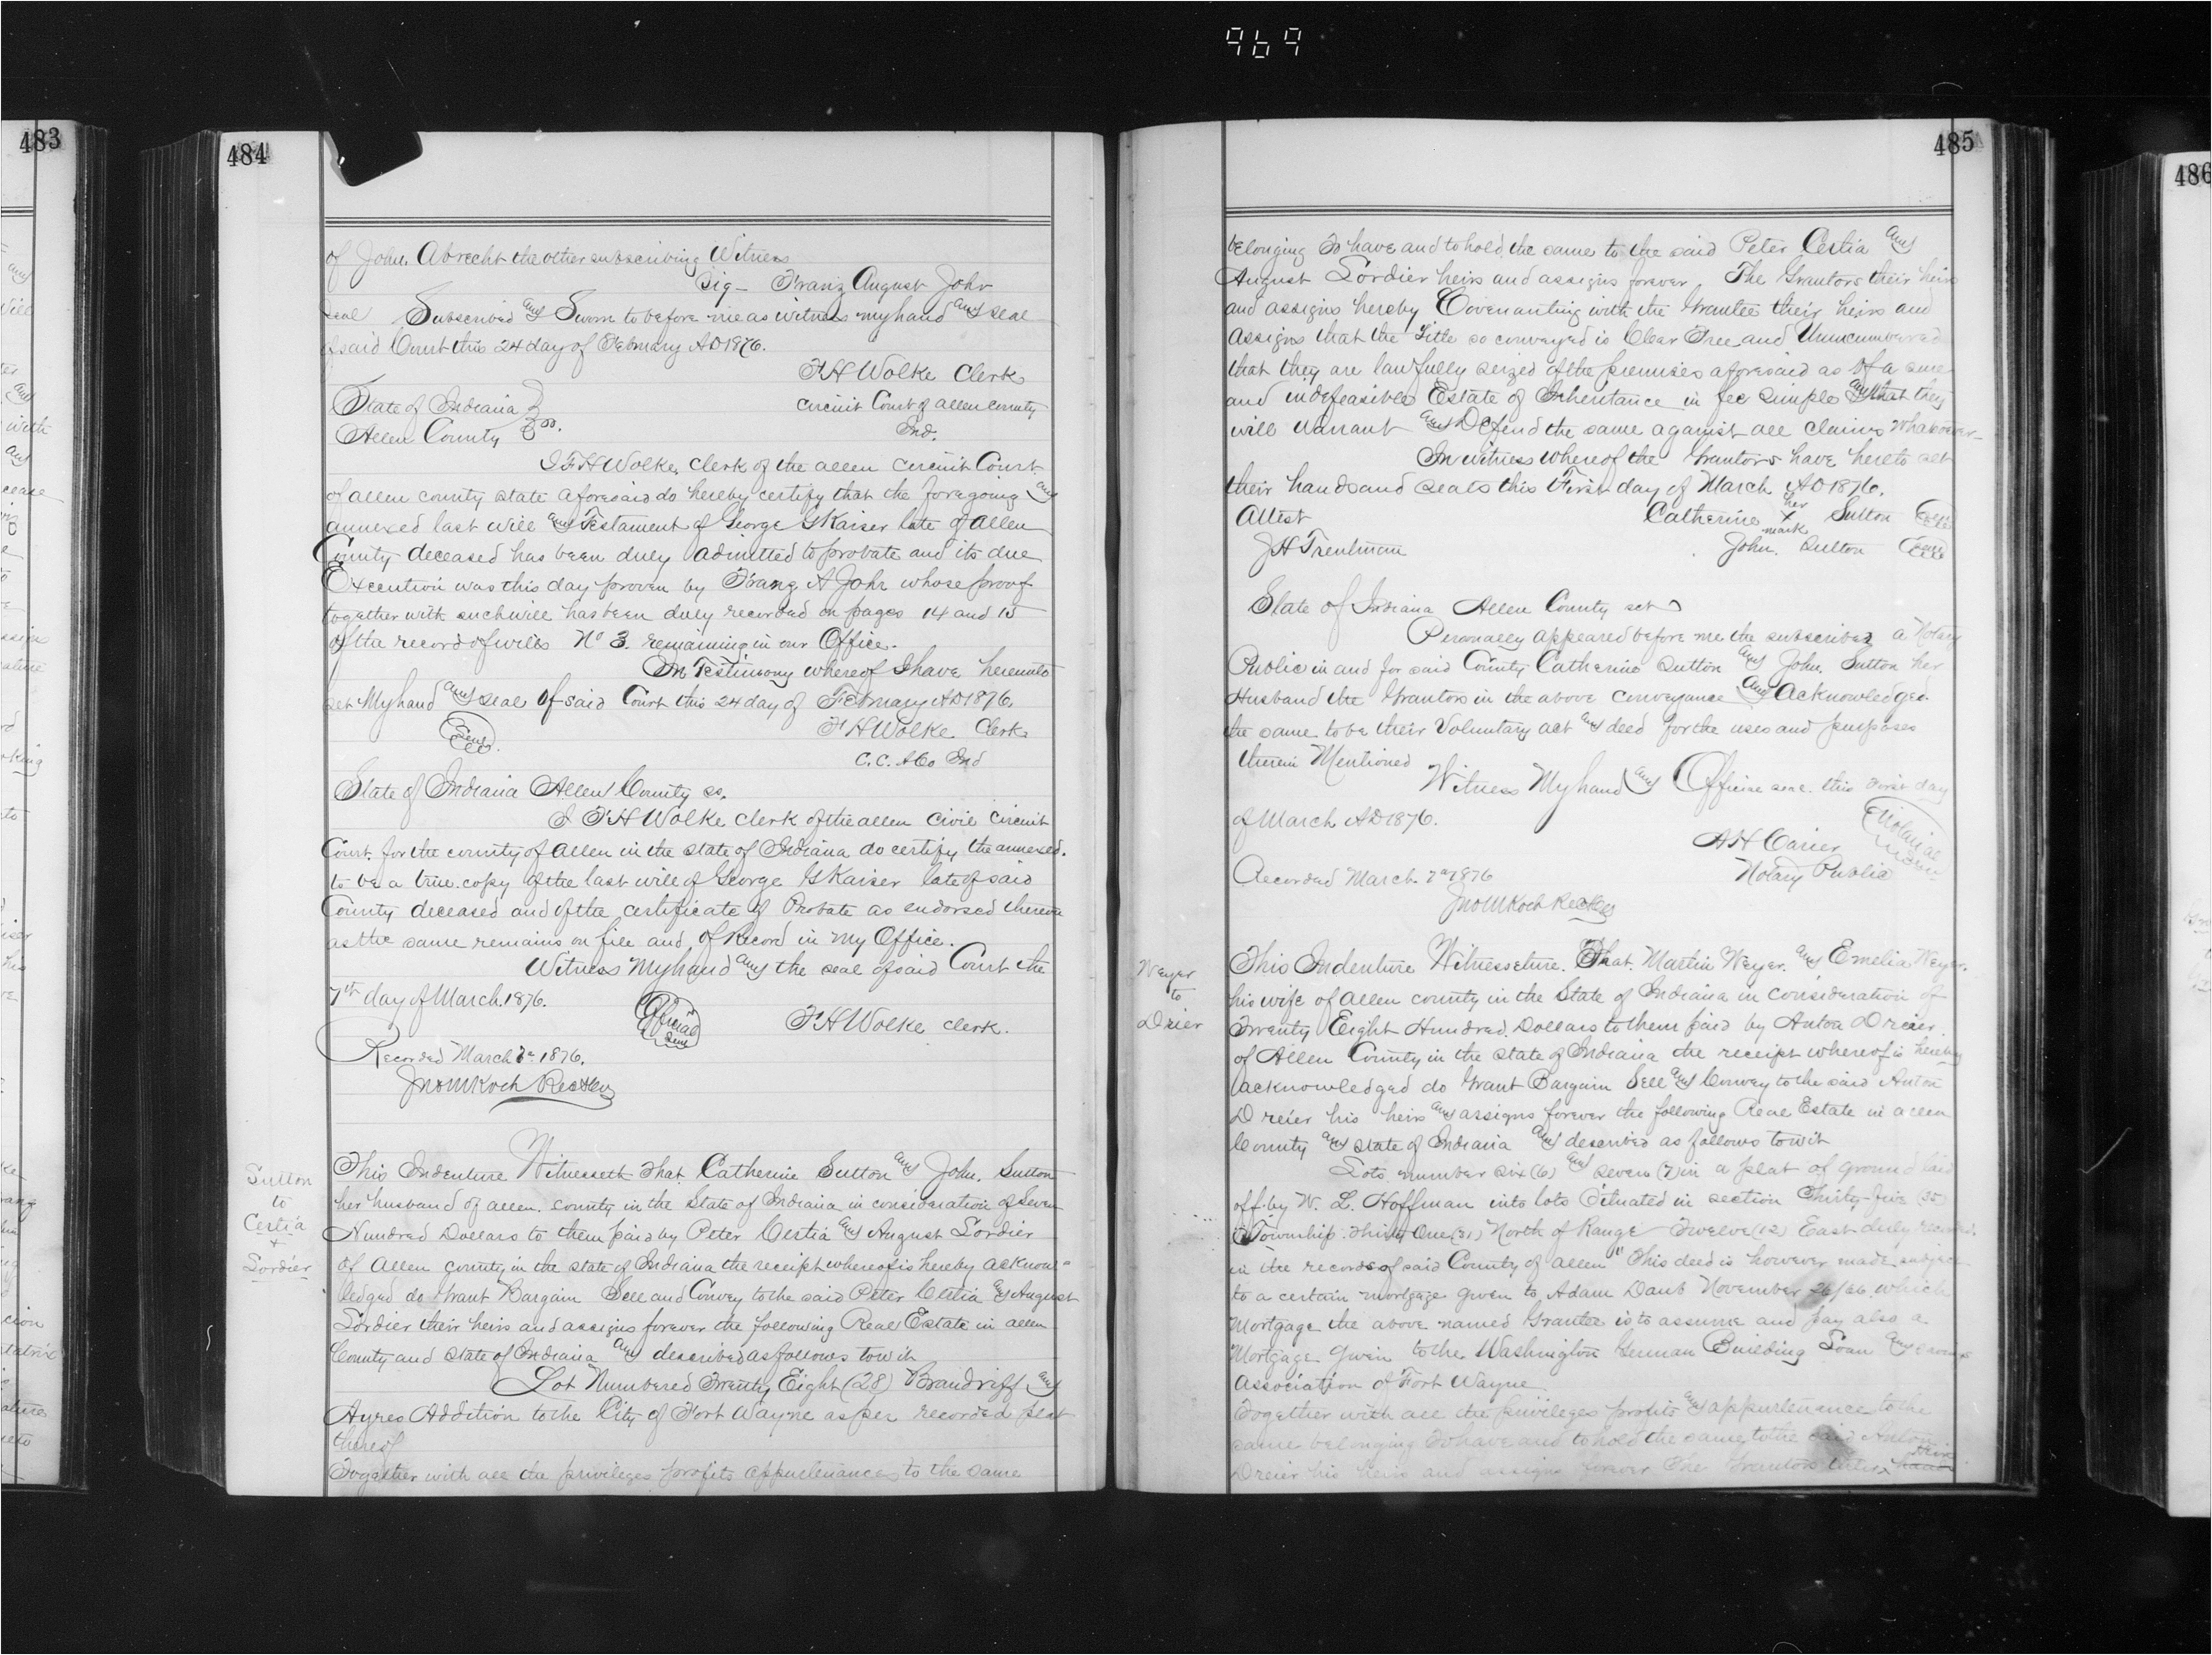 969
483
484
of John Abrecht the other subscribing Witness
Sig - Franz August John
Seal Subscribed and Sworn to before me as witness my hand and seal
of said Court this 24 day of February AD 1876.
F H Wolke Clerk
State of Indiana
Circuit Court of allen county
Allen County ss.
Ind.
I F H Wolke, Clerk of the allen circuit Court
of allen county state aforesaid do hereby certify that the foregoing and
annexed last will and Testament of George G Kaiser late of Allen
County deceased has been duly admitted to probate and its due
Execution was this day proven by Franz A John whose proof
together with such will has been duly recorded on pages 14 and 15
of the record of wills No 3. remaining in our Office.
In Testimony whereof I have hereunto
set My hand and seal of said Court this 24 day of February AD 1876.
Seal
F H Wolke Clerk
C. C. A Co Ind
State of Indiana Allen County ss.
I F H Wolke clerk of the allen civil circuit
Court. for the county of Allen in the state of Indiana do certify the annexed.
to be a true copy of the last will of George G Kaiser late of said
County deceased and of the certificate of Probate as endorsed thereon
as the same remains on file and of Record in my Office.
Witness My hand and the seal of said Court the
7th day of March. 1876.
Official Seal
F H Wolke clerk.
Recorded March 7th 1876.
Jno M Koch Rec
Sutton
to
Certia
+
Sordier
This Indenture Witnesseth That Catherine Sutton and John. Sutton
her husband of allen. county in the State of Indiana in consideration of Seven
Hundred Dollars to them paid by Peter Certia and August Sordier
of Allen county in the state of Indiana the receipt whereof is hereby acknow-
ledged do Grant Bargain Sell and Convey to the said Peter Certia and August
Sordier their heirs and assigns forever the following Real Estate in allen
County and State of Indiana and described as follows towit
Lot Numbered Twenty Eight (28) Brandriff and
Ayres Addition to the City of Fort Wayne as per recorded plat
thereof
Together with all the privileges profits appurtenances to the same
485
belonging To have and to hold the same to the said Peter Certia and
August Sordier heirs and assigns forever The Grantors their heirs
and assigns hereby Covenanting with the Grantee their heirs and
assigns that the Title so conveyed is Clear Free and Unincumbered
that they are lawfully seized of the premises aforesaid as of a sure
and indefeasible Estate of Inheritance in fee simple and that they
will warrant and Defend the same against all claims whatsoever
In witness whereof the Grantors have hereto set
their hands and seals this First day of March AD 1876.
Attest
Catherine her X mark Sutton Seal
J H Trentman
John. Sutton Seal
State of Indiana Allen County sct
Personally appeared before me the subscriber a Notary
Public in and for said County Catherine Sutton and John. Sutton her
Husband the Grantors in the above conveyance and Acknowledged
the same to be their Voluntary act and deed for the uses and purposes
therein Mentioned
Witness My hand and Official seal this First day
of March AD 1876.
A H Carier
Notarial
Notary Public
Recorded March 7th 1876
Jno M Koch Rec
Weyer
to
Drier
This Indenture Witnesseture. That. Martin Weyer. and Emelia Weyer.
his wife of allen county in the State of Indiana in consideration of
Twenty Eight Hundred. Dollars to them paid by Anton Dreier
of Allen County in the state of Indiana the receipt whereof is hereby
acknowledged do Grant Bargain Sell and Convey to the said Anton
Dreier his heirs and assigns forever the following Real Estate in allen
County and State of Indiana and described as follows towit
Lots number six (6) and seven (7) in a plat of ground laid
off by W. L. Hoffman into lots Situated in section Thirty-five (35)
Township Thirty One (31) North of Range Twelve (12) East duly recorded.
in the records of said County of allen" This deed is however made subject
to a certain mortgage given to Adam Daub November 26/66. which
Mortgage the above named Grantee is to assume and pay also a
Mortgage given to the Washington German Building Loan and
Association of Fort Wayne
Together with all the privileges profits and appurtenance to the
same belonging To have and to hold the same to the said Anton
Dreier his heirs and assigns forever The Grantors their
486